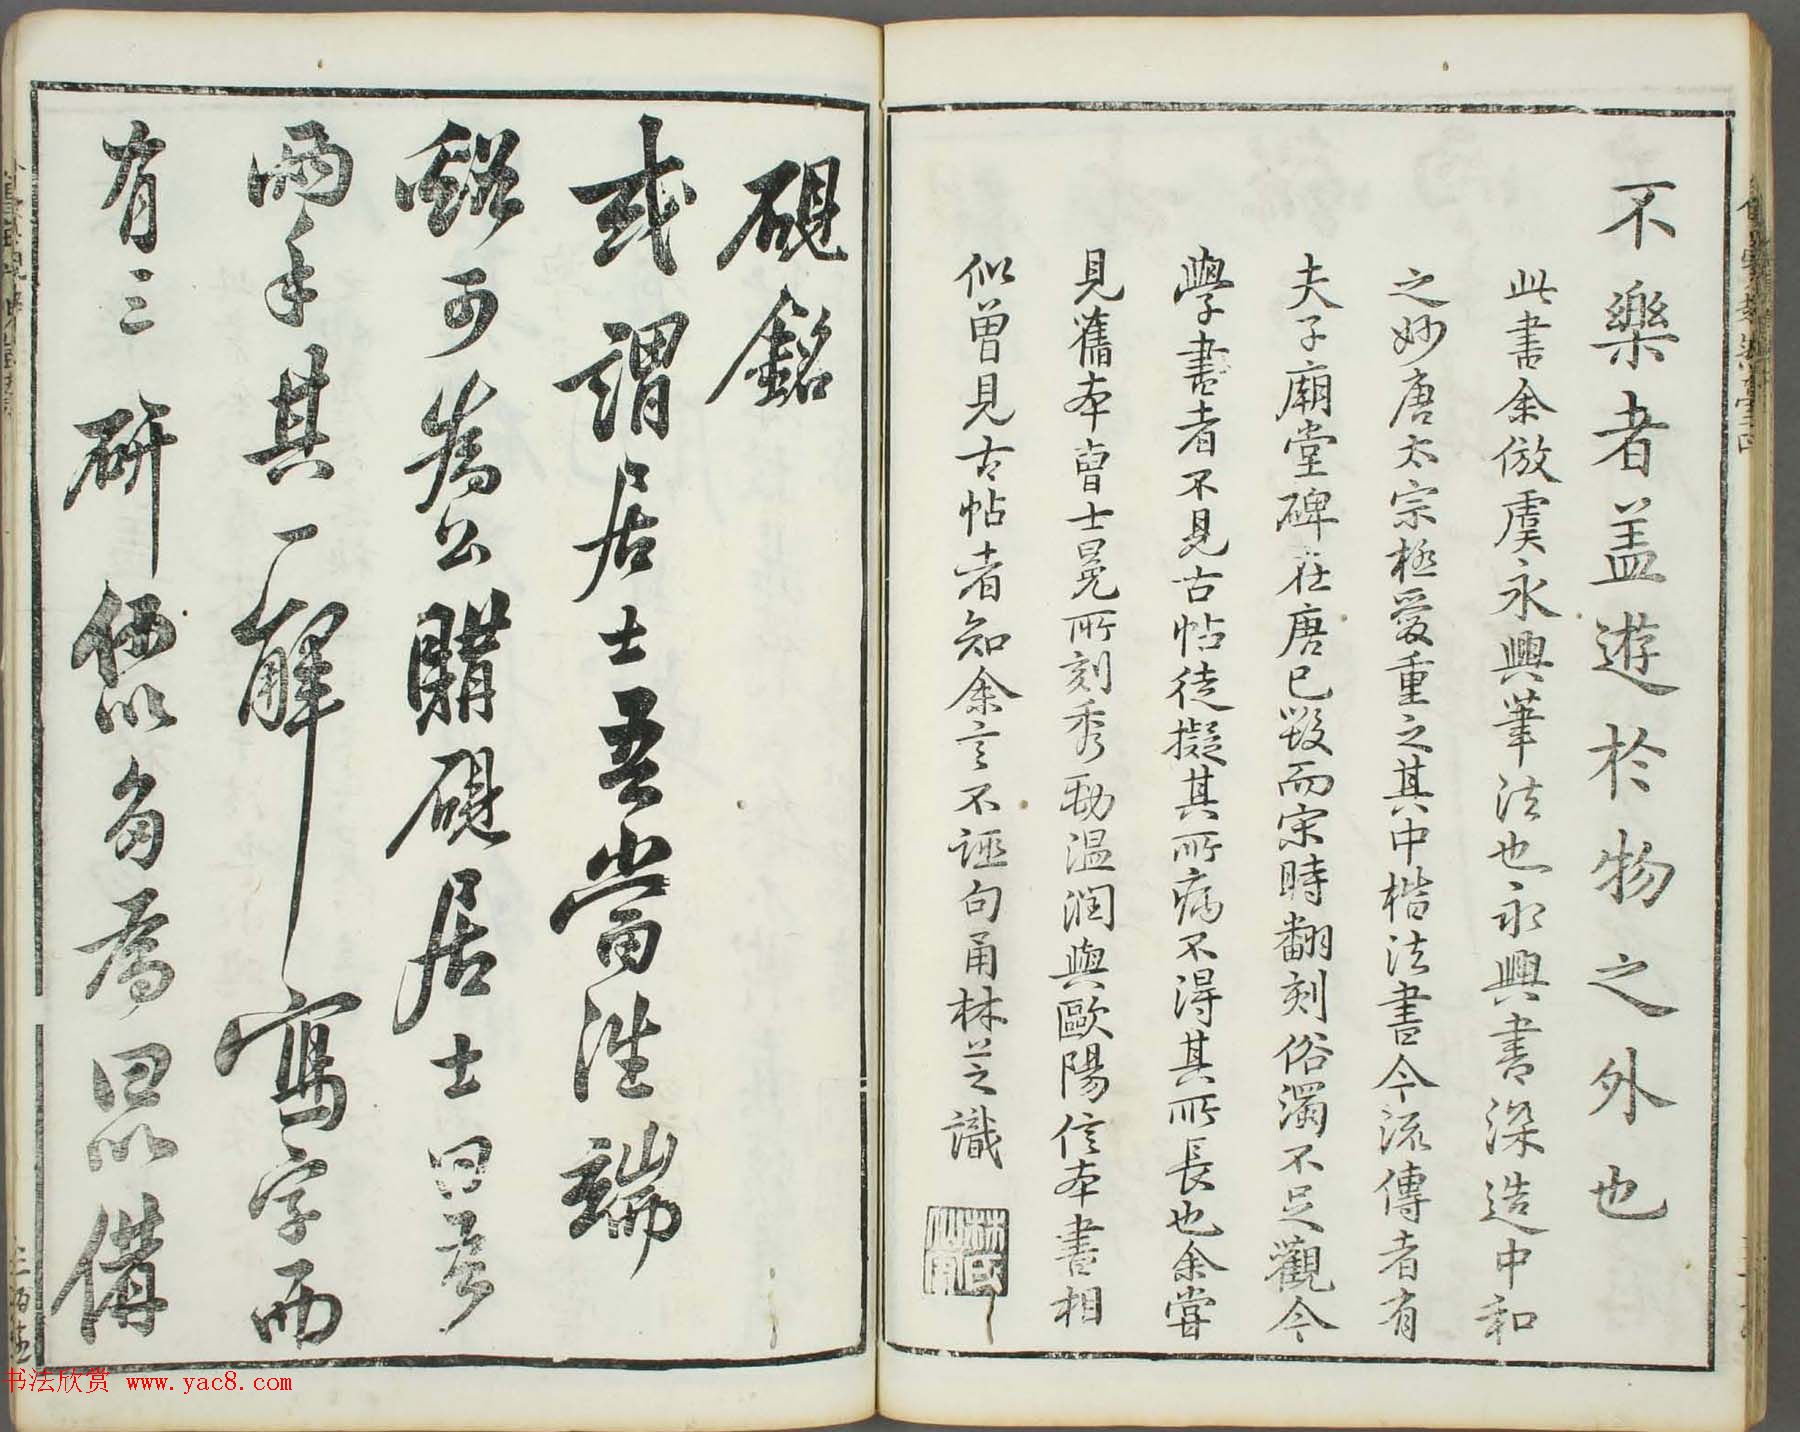 不樂者蓋遊於物之外也
此書余倣虞永興筆法也永興書深造中和
之妙唐太宗極愛重之其中楷法書今流傳者有
夫子廟堂碑在唐已毀而宋時翻刻俗濁不足觀今
學書者不見古帖徒擬其所病不得其所長也余嘗
見舊本曹士冕所刻秀勁溫潤與歐陽信本書相
似曾見古帖者知余言不誣句甬林芝識
硯銘
或謂居士吾當往端
谿可為公購硯居士曰吾
兩手其一解寫字而
有三研何以多為曰以備
书法欣赏 www.yac8.com